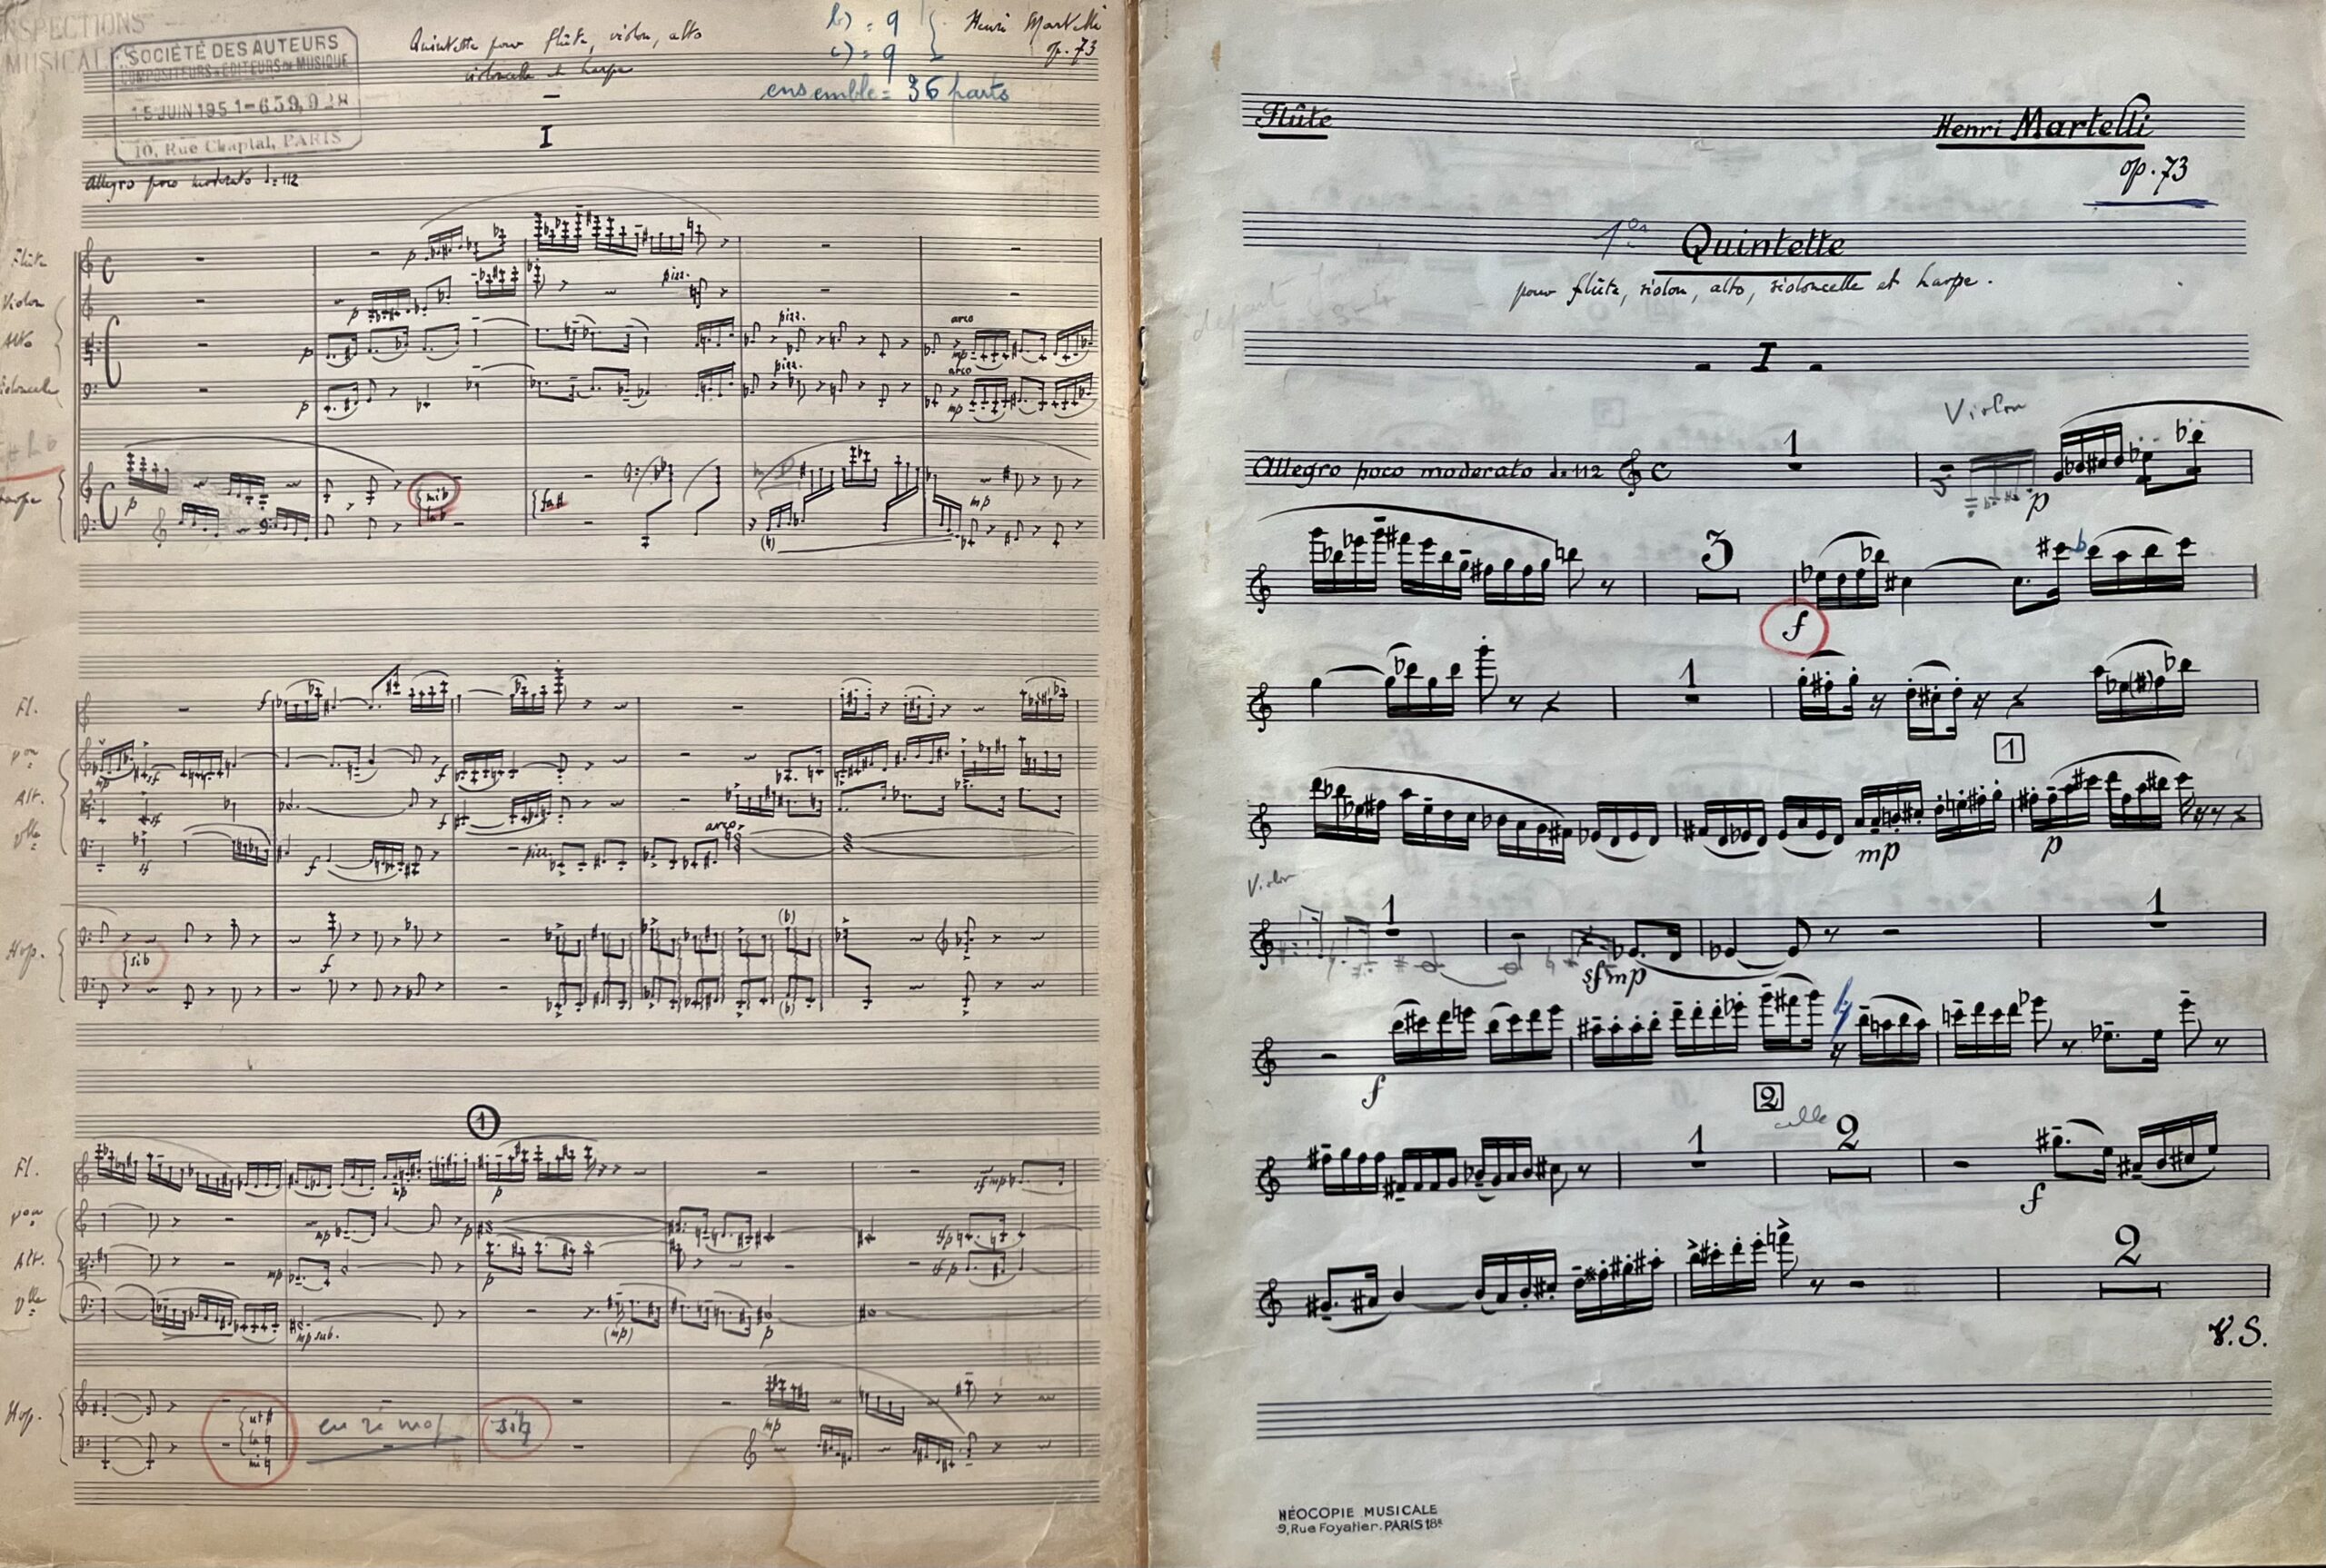 INSPECTIONS
MUSICAL
SOCIÉTÉ DES AUTEURS
COMPOSITEURS & EDITEURS DE MUSIQUE
15 JUIN 1951-659,928
10, Rue Chaptal, PARIS
Quintette pour flûte, violon, alto
violoncelle et harpe
b) = 9
c) = 9
ensemble = 36 parts
Henri Martelli
op. 73
I
Allegro poco moderato ♩=112
Flûte
Violon
Alto
Violoncelle
Harpe
p
p
pizz.
p
pizz.
arco
mp
p
pizz.
arco
mp
p
mib
lab
fa#
mp
Fl.
f
Von
mp
sf
f
Alt.
sf
f
Vlle
sf
f
pizz.
arco
Hrp.
sib
f
1
Fl.
mp
p
sfmp
Von
mp
p
sfp
Alt.
mp
p
sfp
Vlle
mp sub.
(mp)
p
Hrp.
ut#
la♮
mi♮
si♮
mp
Flûte
Henri Martelli
op. 73
1er Quintette
pour flûte, violon, alto, violoncelle et harpe.
I
Violon
Allegro poco moderato ♩=112
1
p
3
f
1
1
mp
p
Violon
1
sfmp
1
f
2
1
2
f
2
V.S.
NÉOCOPIE MUSICALE
9, Rue Foyatier. PARIS 18e